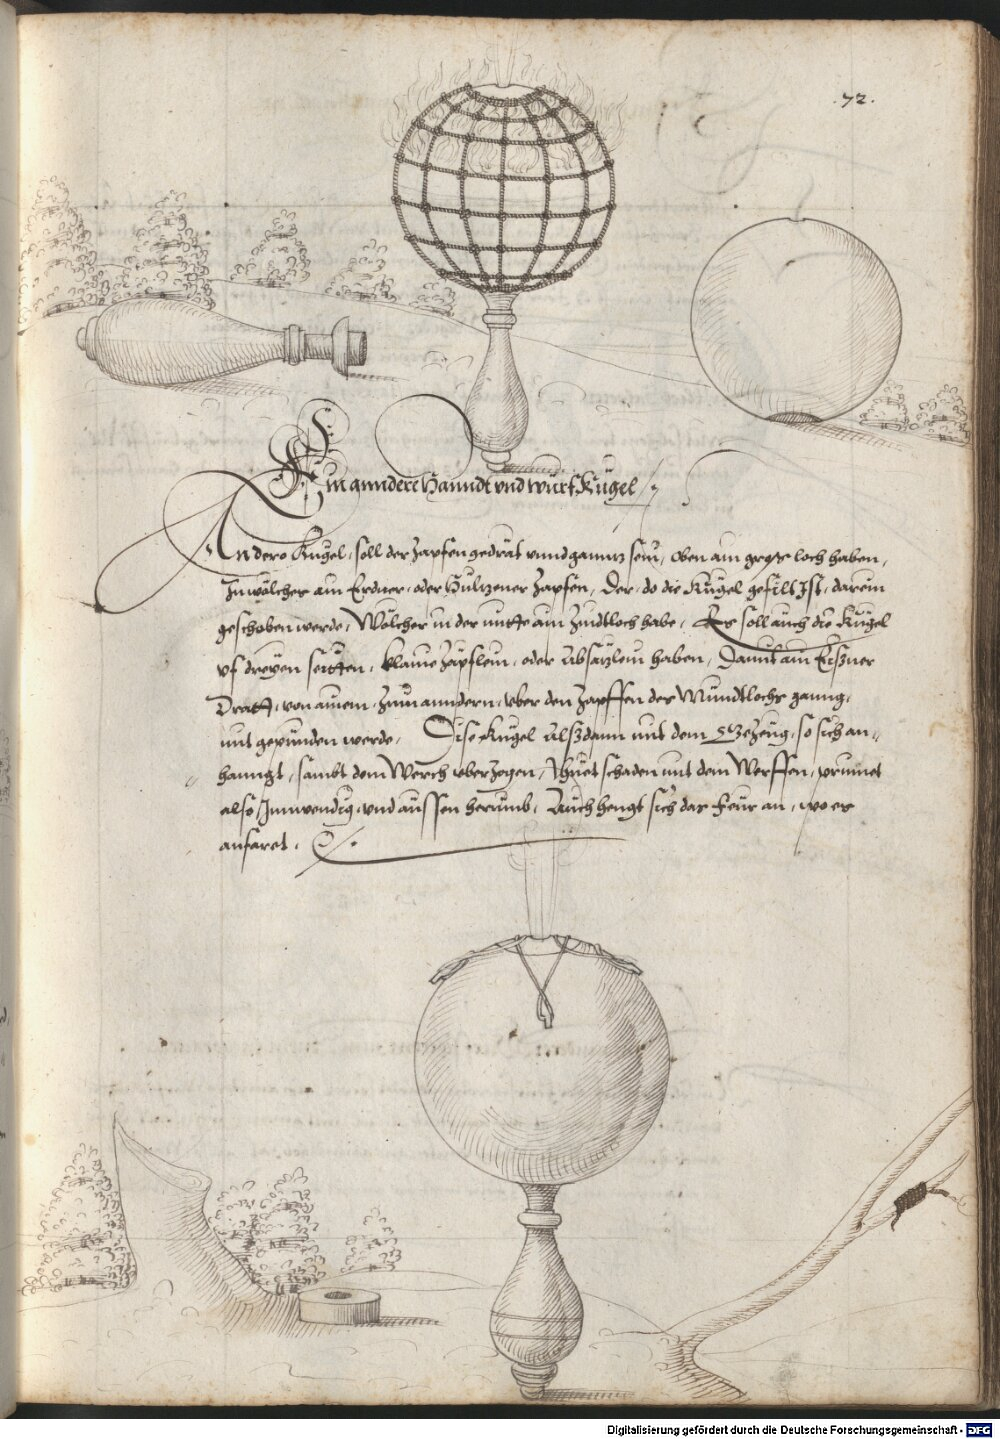 .72.
Ein anndere Hanndt vnd wurf Kugel
An dero Kugel, soll der Zapfen gedrät vnnd gannz sein, Oben ain gross loch haben,
In wölcher ain Erdner, oder Hültzener Zapfen, Der, do die Kugel gefilt Ist, darein
geschoben werde, Wölcher in der mitte ain Zindtloch habe, Es soll auch die Kugel
vf dreyen seitten, klaine Zäpflein, oder Absätzlein haben, Damit ain Eißner
Dratt, von ainem, Zum anndern, vber den Zapffen des Mundtlochs ganng,
mit gepunden werde, Dise Kugel Alßdann mit dem Zeüg, so sich an„
hanngt, sambt dem Werch vberzogen, Thuet schaden mit dem Werffen, prinnet
also Innwendig, vnd aussen herumb, Auch hengt sich das Feur an, wo es
anfaret,
Digitalisierung gefördert durch die Deutsche Forschungsgemeinschaft - DFG